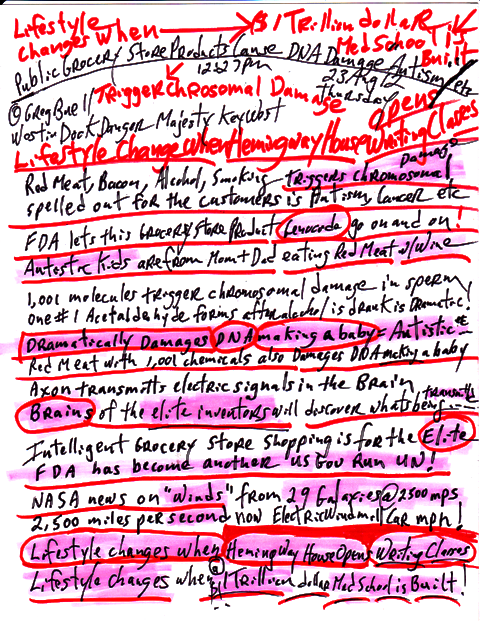 Lifestyle
changes when
$1 Trillion dollar
Med School is
Built
Public Grocery Store Products Cause DNA Damage Autism etc
12:27pm
23 Aug 12
Thursday
Trigger Chrosomal Damage
@ Greg Buell
Westin Dock Danger Majesty Key West
opens
Lifestyle Change when Hemingway House Writing Classes
Red Meat, Bacon, Alcohol, Smoking triggers chromosomal Damage
spelled out for the customers is Autism, Cancer etc
FDA lets this Grocery Store Product Genocide go on and on!
Autistic Kids are from Mom + Dad eating Red Meat w/ Wine
1,001 molecules trigger chromosomal damage in sperm
one #1 Acetaldehyde forms after alcohol is drank is Dramatic!
Dramatically Damages DNA making a baby = Autistic
Red Meat with 1,001 chemicals also Damages DNA making a baby
Axon transmitts electric signals in the Brain
Brains of the elite inventors will discover whats being transmitts
Intelligent Grocery Store Shopping is for the Elite
FDA has become another US Gov Run UN!
NASA news on "winds" from 29 Galaxies @ 2500 mps
2,500 miles per second now Electric Windmill Car mph!
Lifestyle changes when Hemingway House Opens Writing Classes
Lifestyle changes when a $1 Trillion dollar Med School is Built!